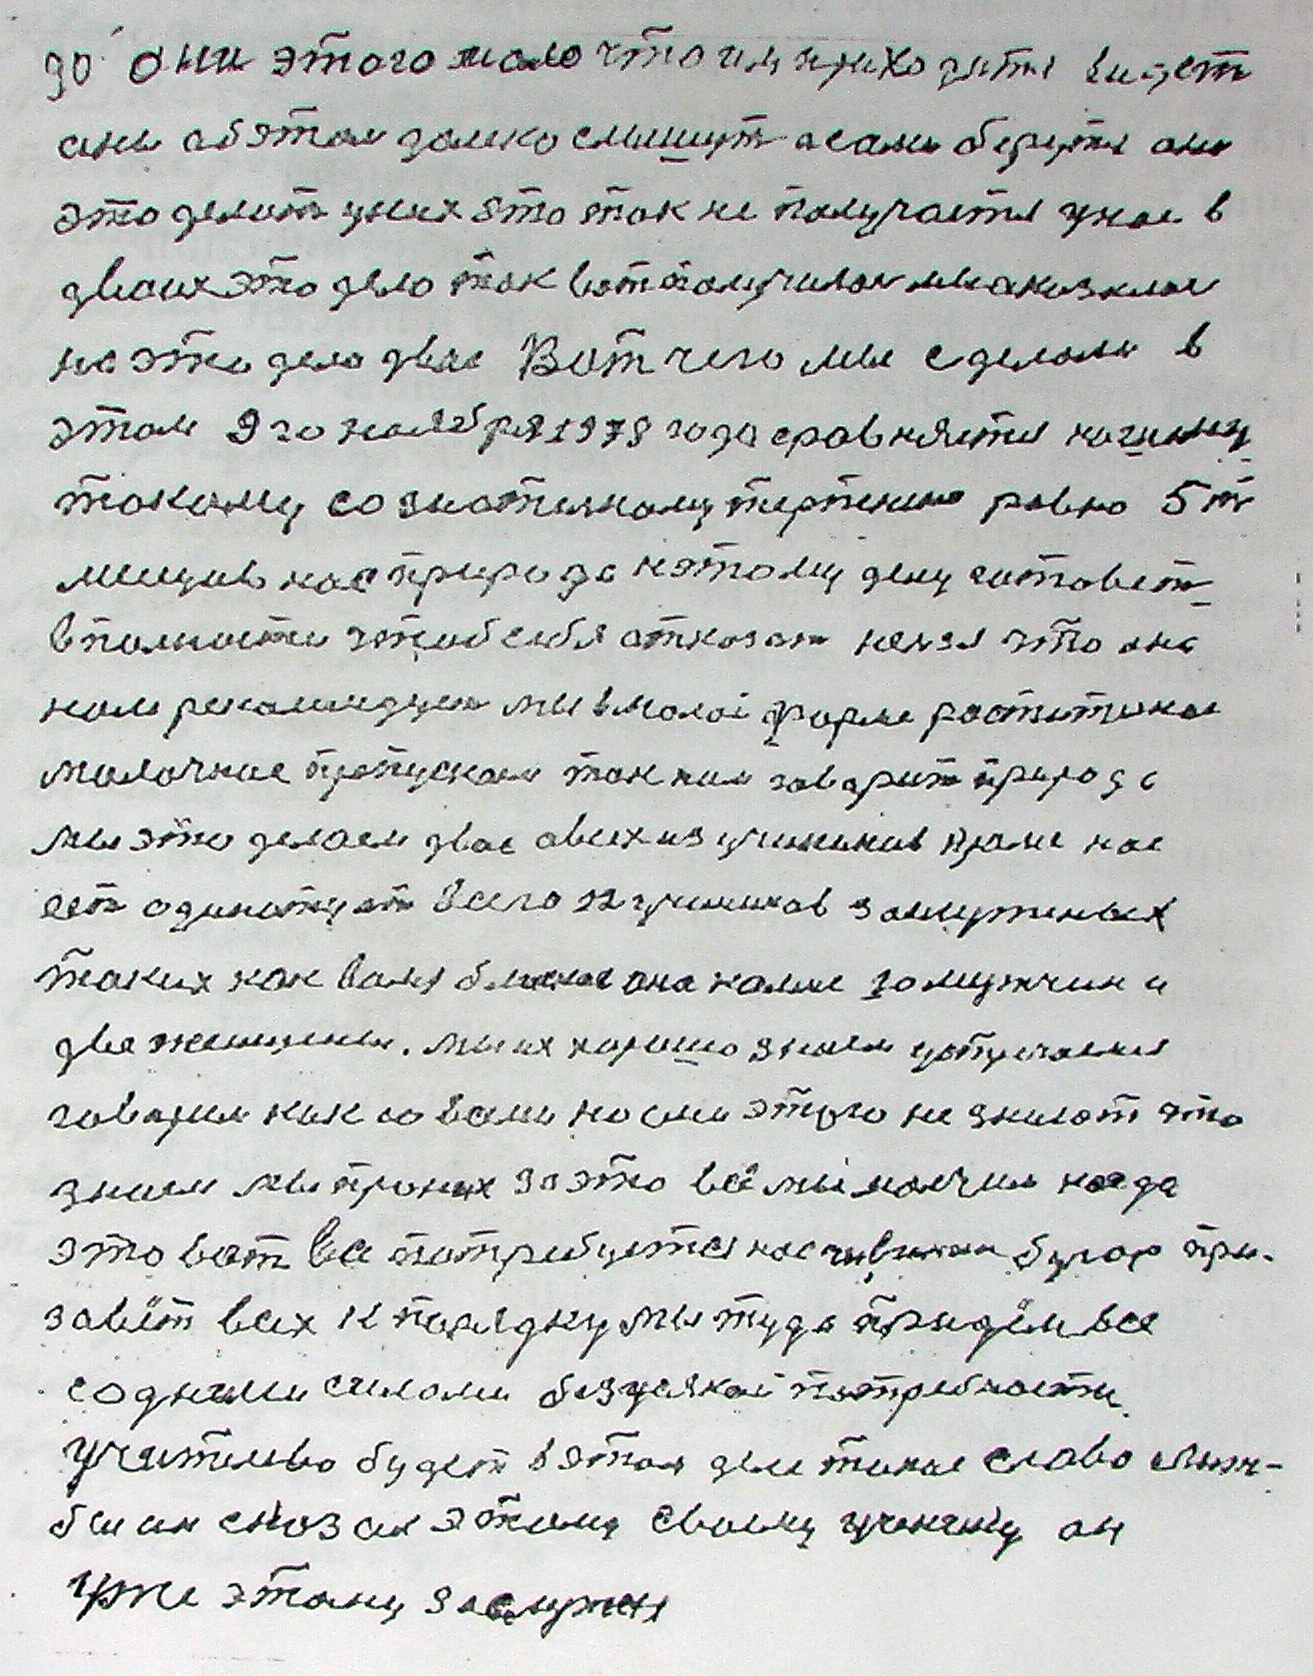 90 они этого мало что им приходится видет
ани абэтом долко слышут а сами берутся они
это делат у них это так не получается у нас в
двоих это дело так вот получилос мы аказалис
на это дело двае Вот чего мы сделали в
этом 9го ноября 1978 года сравняется нашиму
такому сознательному терпению равно 5 т
месецив нас природа к этому делу готовет
вполности чтоб себя отказат нелзя что она
нам рекамендует мы в малой форме растительное
малочное пропускаем так нам говорит природа
мы это делаем двае а всех из учеников кроме нас
ест одинатцат всего 12 учеников заслуженых
таких как вам близкае она наше 10 мужчин и
две женщины. мы их хорошо знаем устречаемся
говорим как со вами но они этого не знают это
знаем мы про них за это всё мы молчим когда
это вот все потребуется нас чувилкин бугор при-
завёт всех к порядку мы туда придём все
со днеми силами без усякой потребности
Учительво будет в этом деле такое слово лиж-
бы ин сказал этому своему ученику он
уже этому заслужен